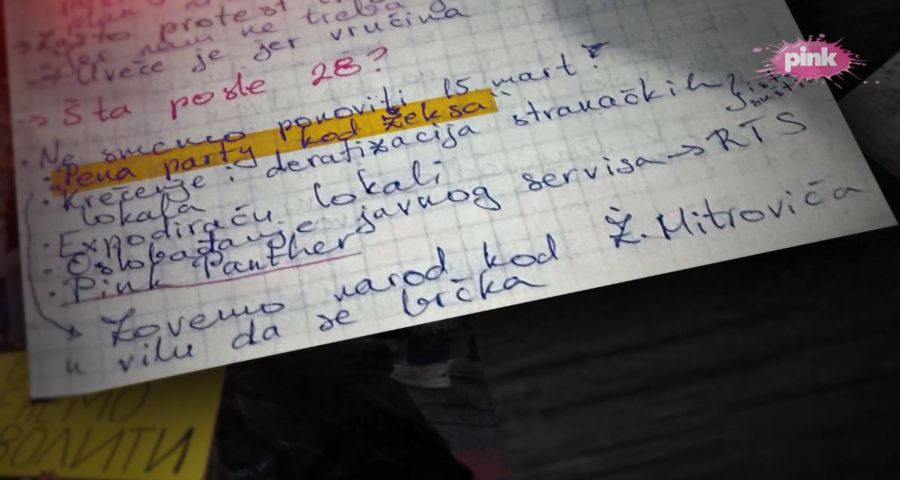 → Zašto protest
Jer nam ne treba
→ Uveče je jer vrućina
→ Šta posle 28?
· Ne smemo ponoviti 15 mart!
· Pena party kod Žeksa
· Krečenje i deratizacija stranačkih
lokala
· Expodiraću lokali
· Oslobađanje javnog servisa → RTS
· Pink Panther
→ Zovemo narod kod Ž. Mitrovića
u vilu da se brčka
pink
ВОЛИТИ